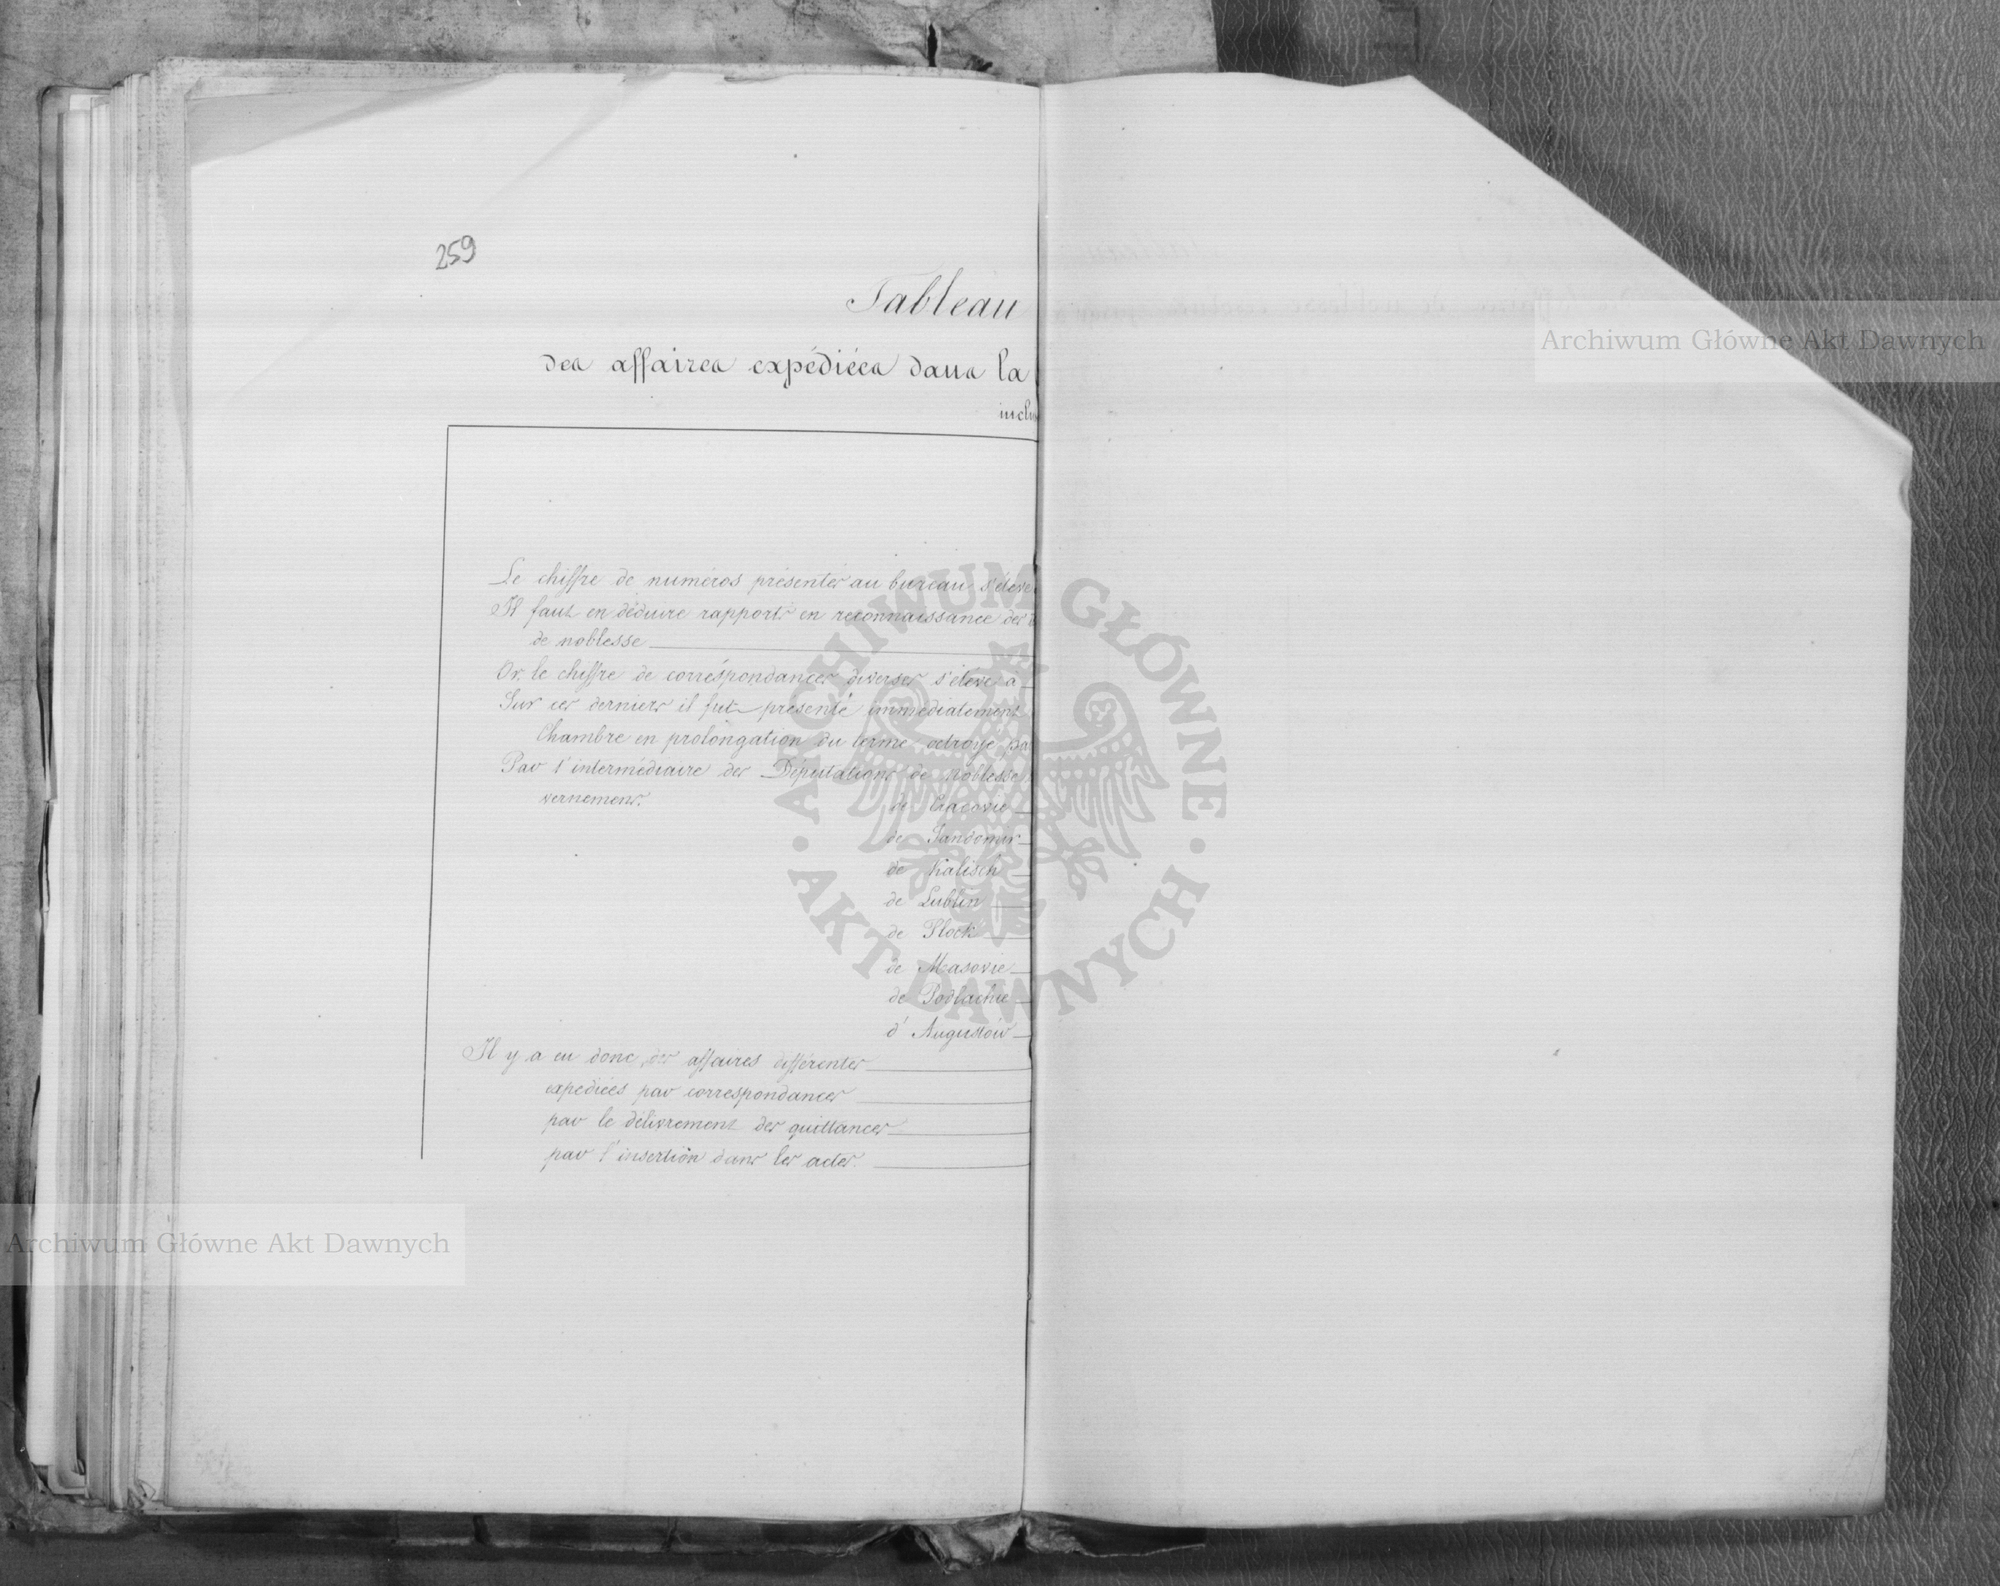 259
Tableau
des affaires expédiées dans la
inclu
Le chiffre de numéros présentés au bureau s'élève
Il faut en déduire rapports en reconnaissance des
de noblesse
Or, le chiffre de correspondances diverses s'élève à
Sur ces derniers il fut présenté immédiatement
Chambre en prolongation du terme octroyé pa
Par l'intermédiaire des Députations de noblesse
vernemens.
de Cracovie
de Sandomir
de Kalisch
de Lublin
de Plock
de Masovie
de Podlachie
d'Augustow
Il y a eu donc des affaires différentes
expédiées par correspondances
par le délivrement des quittances
par l'insertion dans les actes.
Archiwum Główne Akt Dawnych
Archiwum Główne Akt Dawnych
ARCHIWUM GŁÓWNE
AKT DAWNYCH